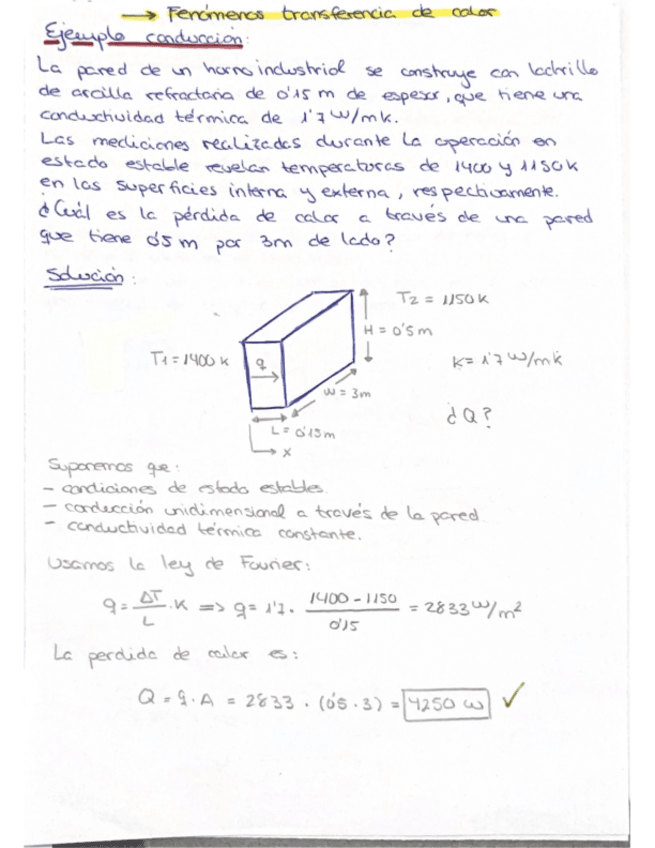 → Fenómenos transferencia de calor
Ejemplo conducción:
La pared de un horno industrial se construye con ladrillo
de arcilla refractaria de 0'15 m de espesor, que tiene una
conductividad térmica de 1'7 W/mK.
Las mediciones realizadas durante la operación en
estado estable revelan temperaturas de 1400 y 1150K
en las superficies interna y externa, respectivamente.
¿Cuál es la pérdida de calor a través de una pared
que tiene 0'5 m por 3m de lado?
Solución:
T2 = 1150K
H = 0'5m
T1=1400K
q
K= 1'7 W/mK
w = 3m
¿Q?
L= 0'15m
x
Suponemos que:
- condiciones de estado estables.
- conducción unidimensional a través de la pared
- conductividad térmica constante.
Usamos la ley de Fourier:
q = ΔT/L · K => q= 1'7 · (1400-1150)/0'15 = 2833 W/m²
La perdida de calor es:
Q = q · A = 2833 · (0'5 · 3) = 4250 W ✓